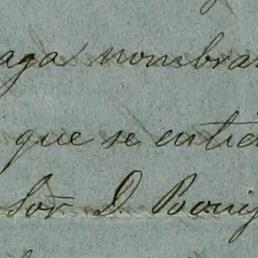 aga nombra
que se entie
Sor. D. Boni